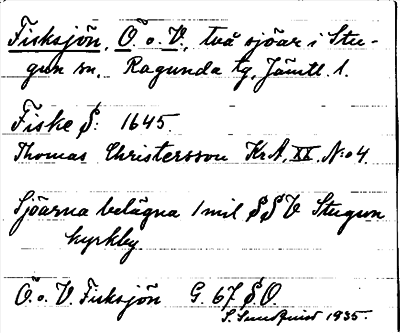 Fisksjön, Ö. o. V., två sjöar i Stu-
gun sn. Ragunda tg, Jämtl. l.
Fiske S: 1645.
Thomas Christersson Kr A, XX, N:o 4.
Sjöarna belägna 1 mil SSV Stugun
kyrkby.
Ö. o. V. Fisksjön G. 67 SO.
S. Sundquist 1935.